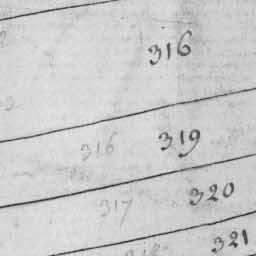 316
316 319
317 320
321